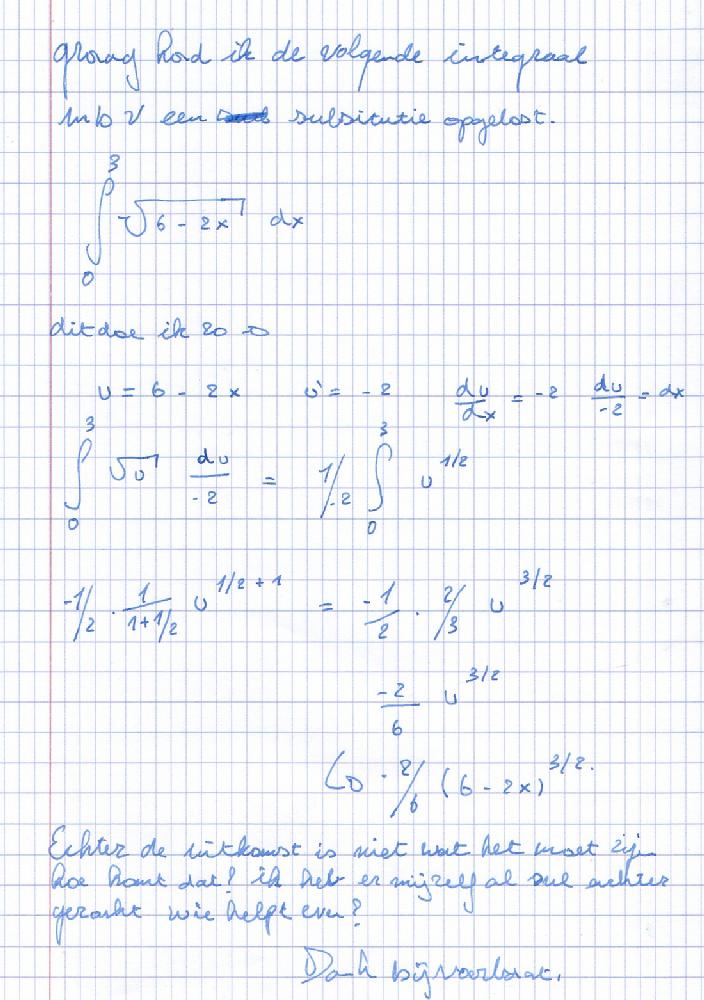 graag had ik de volgende integraal
m b v een subsitutie opgelost.
3
∫ √(6 - 2x) dx
0
dit doe ik zo →
u = 6 - 2x u' = -2 du/dx = -2 du/-2 = dx
3 3
∫ √u du/-2 = 1/-2 ∫ u^1/2
0 0
-1/2 . 1/(1+1/2) u^(1/2+1) = -1/2 . 2/3 u^3/2
-2/6 u^3/2
↳ -2/6 (6 - 2x)^3/2.
Echter de uitkomst is niet wat het moet zijn
hoe komt dat! ik heb er mijzelf al suf achter
gezocht wie helpt even?
Dank bijvoorbaat.